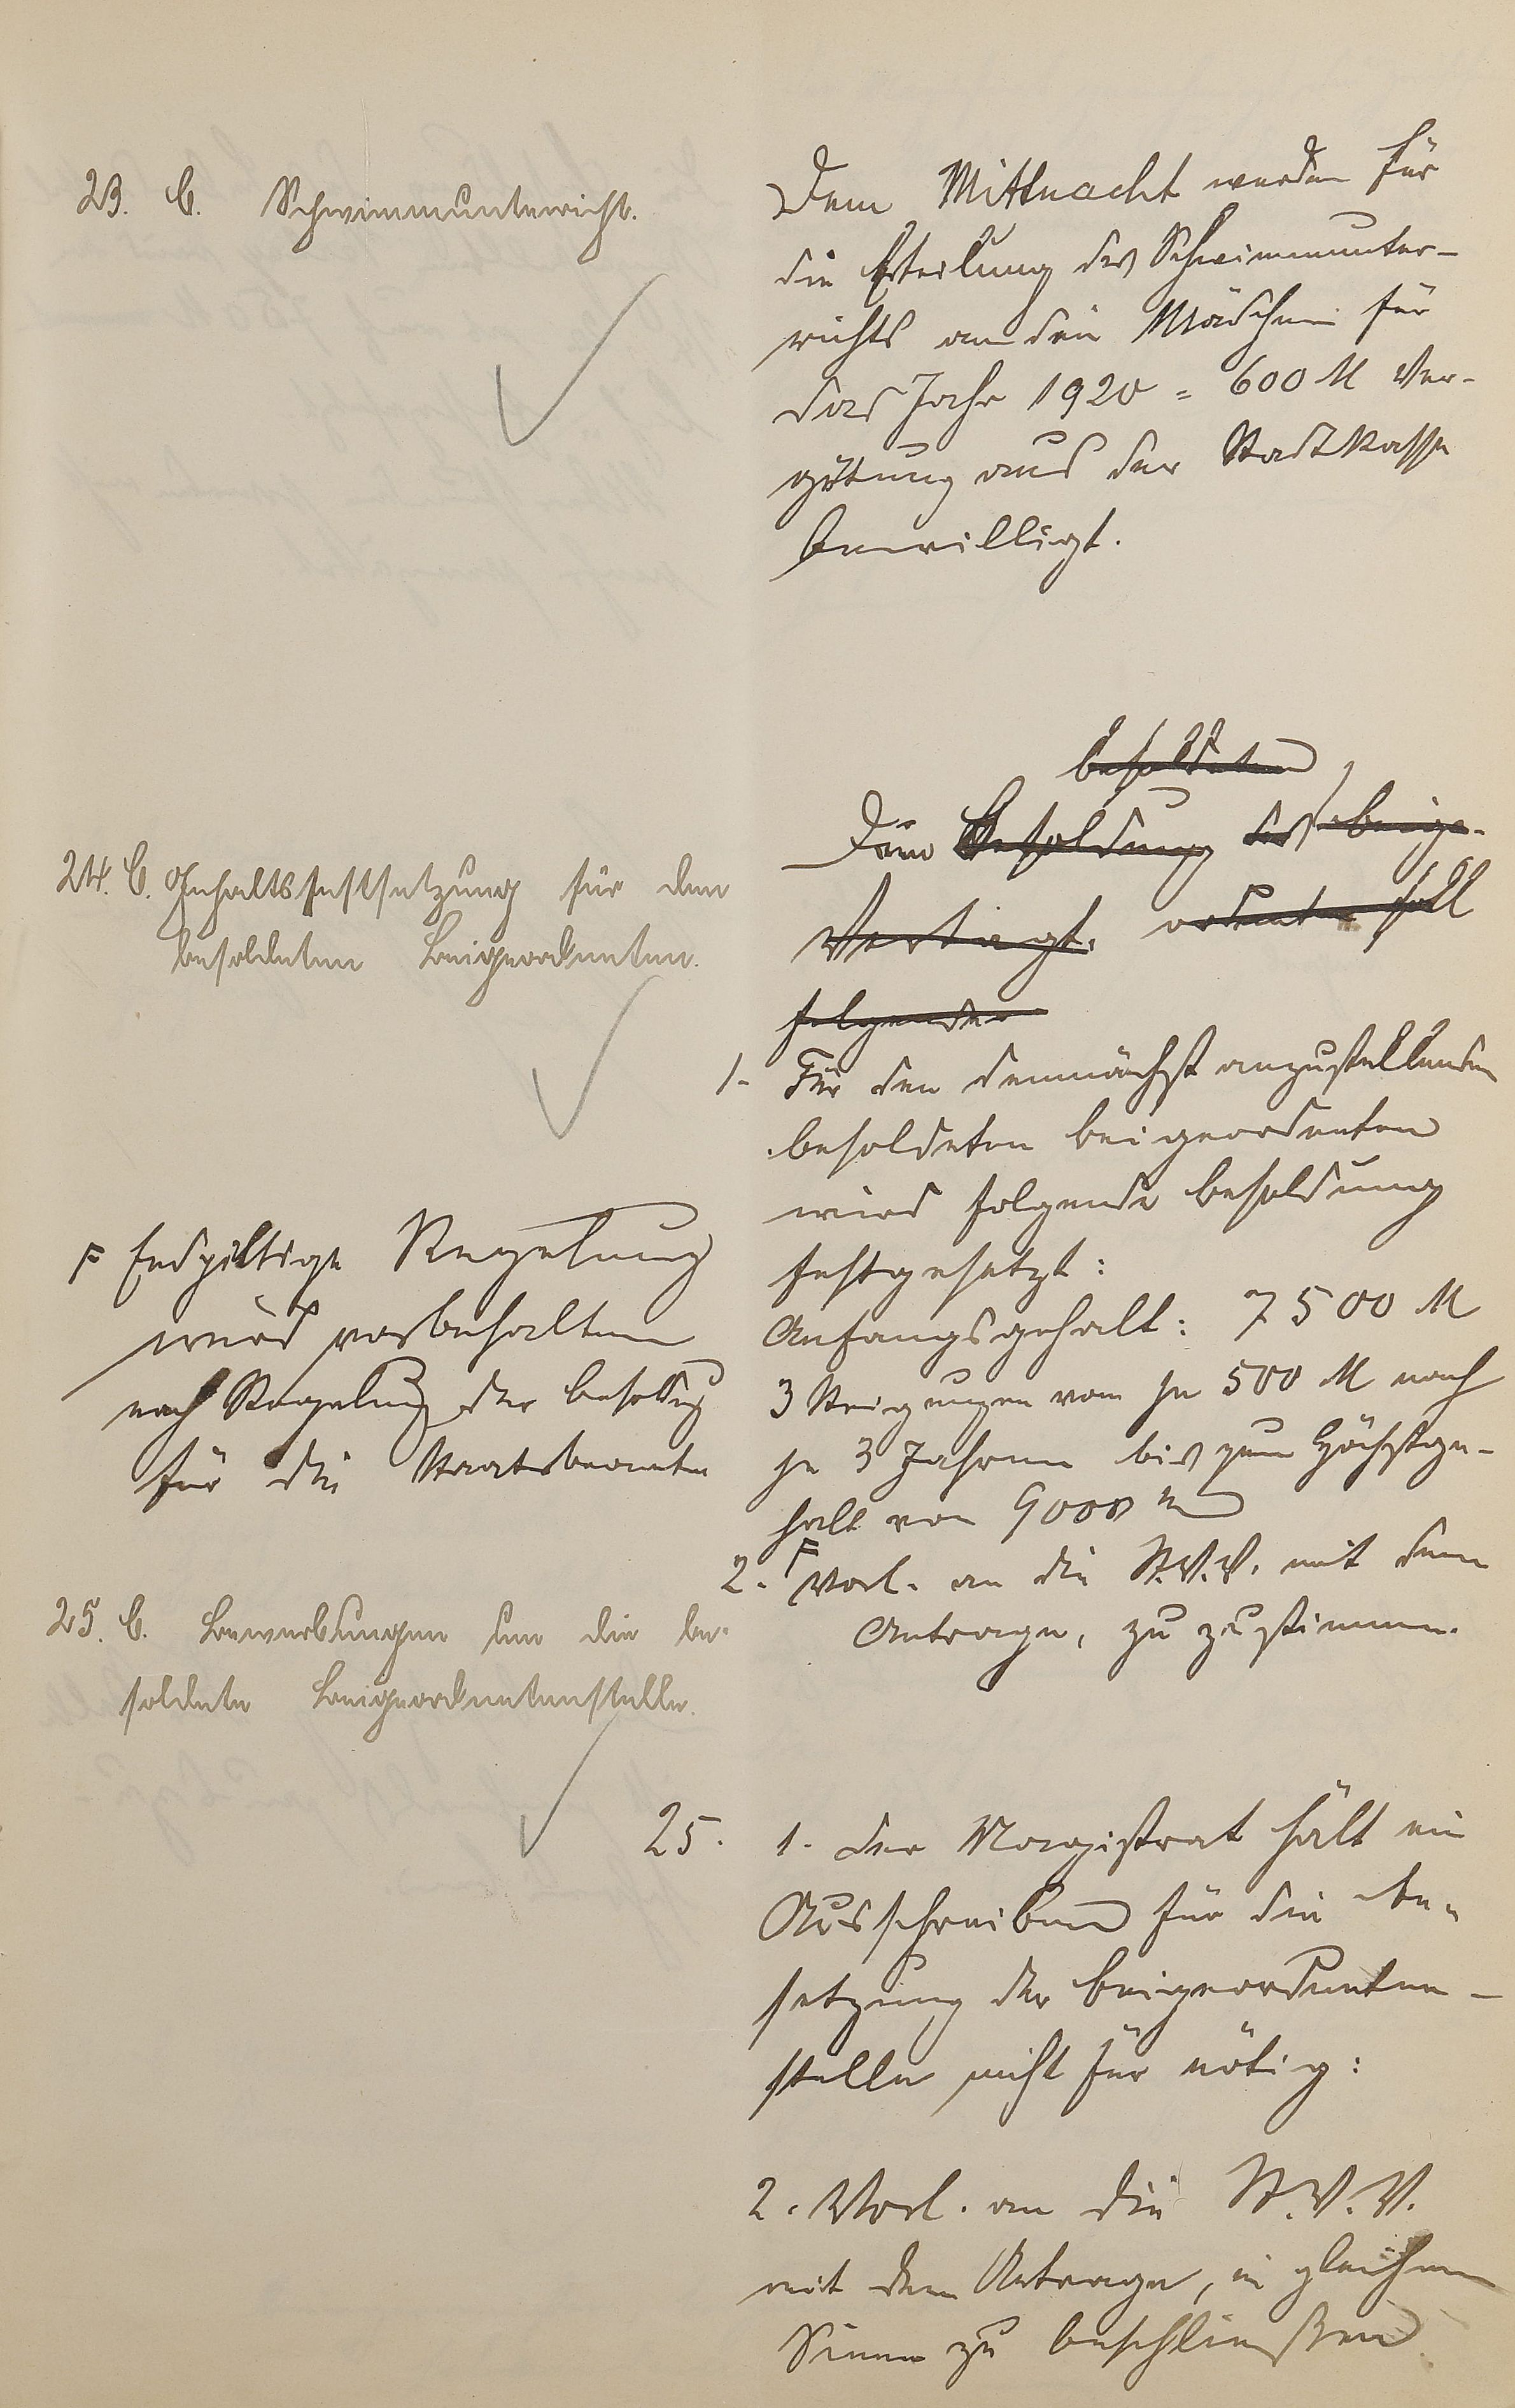 23. C. Schwimmunterricht.
Dem Mittnacht werden für
die Erteilung des Schwimmunter-
richts an die Mädchen für
das Jahr 1920 = 600 M Ver-
gütung aus der Stadtkasse
bewilligt.
24. C. Gehaltsfestsetzung für den
besoldeten Beigeordneten.
besoldeten
Die Besoldung des beige-
Vertagt. ordneten soll
folgender
1. Für den demnächst anzustellenden
besoldeten Beigeordneten
wird folgende Besoldung
festgesetzt:
Anfangsgehalt: 7500 M
3 Steigungen von je 500 M nach
je 3 Jahren bis zum Höchstge-
halt von 9000 M
F Endgiltige Regelung
wird vorbehalten
nach Regelung der Besoldg
für die Staatsbeamten
2. F Vorl. an die St.V.V. mit dem
Antrage, zu zustimmen.
25. C. Bewerbungen um die be-
soldete Beigeordnetenstelle.
25. 1. Der Magistrat hält ein
Ausschreiben für die Be-
setzung der Beigeordneten-
stelle nicht für nötig:
2. Vorl. an die St.V.V.
mit dem Antrage, in gleichem
Sinne zu beschließen